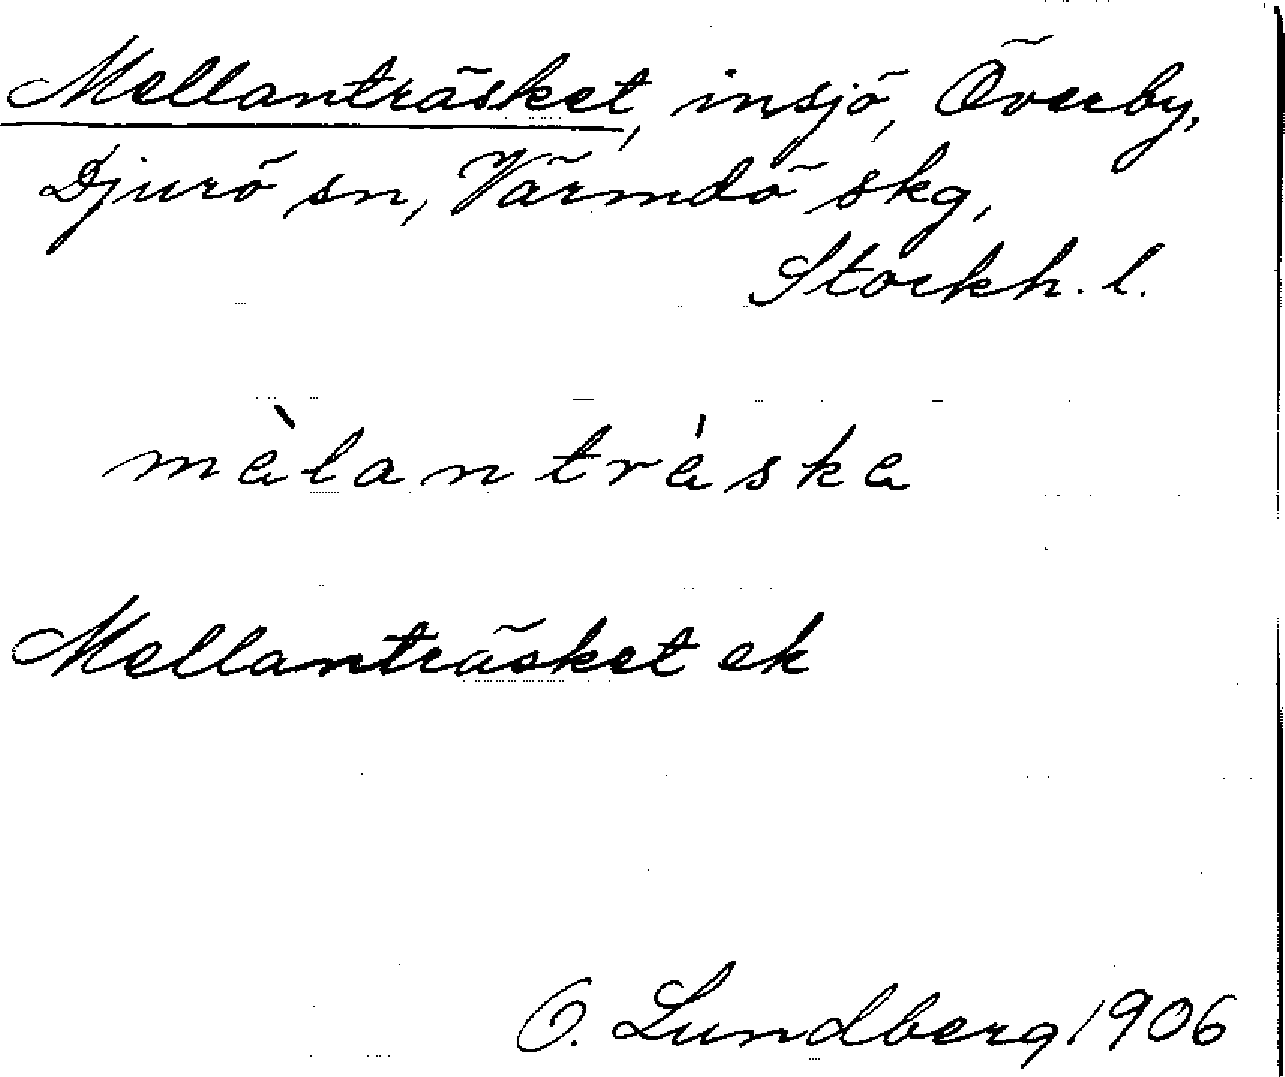 Mellanträsket, insjö, Överby,
Djurö sn, Värmdö skg,
Stockh. l.
mèlantráska
Mellanträsket ek
O. Lundberg 1906